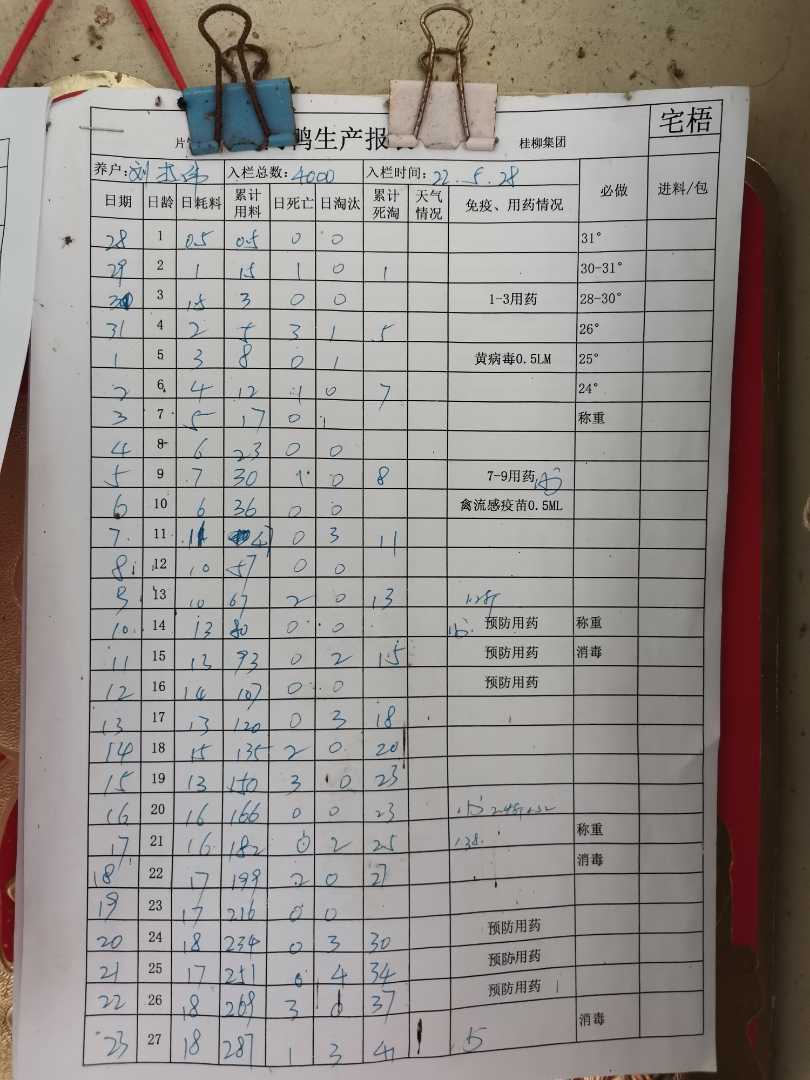 鸭生产报 桂柳集团 宅梧
养户:刘 入栏总数:4000 入栏时间:22.5.28 必做 进料/包
日期 日龄 日耗料 累计用料 日死亡 日淘汰 累计死淘 天气情况 免疫、用药情况
28 1 0.5 0.5 0 0 31°
29 2 1 1.5 1 0 1 30-31°
3 1.5 3 0 0 1-3用药 28-30°
31 4 2 5 3 1 5 26°
1 5 3 8 0 1 黄病毒0.5LM 25°
2 6 4 12 1 0 7 24°
3 7 5 17 0 1 称重
4 8 6 23 0 0
5 9 7 30 1 0 8 7-9用药
6 10 6 36 0 0 禽流感疫苗0.5ML
7 11 11 47 0 3 11
8 12 10 57 0 0
9 13 10 67 2 0 13
10 14 13 80 0 0 预防用药 称重
11 15 13 93 0 2 15 预防用药 消毒
12 16 14 107 0 0 预防用药
13 17 13 120 0 3 18
14 18 15 135 2 0 20
15 19 13 150 3 0 23
16 20 16 166 0 0 23
17 21 16 182 0 2 25 138. 称重
18 22 17 199 2 0 27 消毒
19 23 17 216 0 0
20 24 18 234 0 3 30 预防用药
21 25 17 251 0 4 34 预防用药
22 26 18 269 3 0 37 预防用药
23 27 18 287 1 3 41 15 消毒